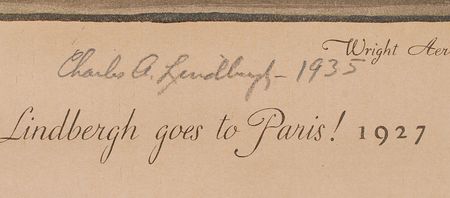 Wright Aer
Charles A. Lindbergh - 1935
Lindbergh goes to Paris! 1927